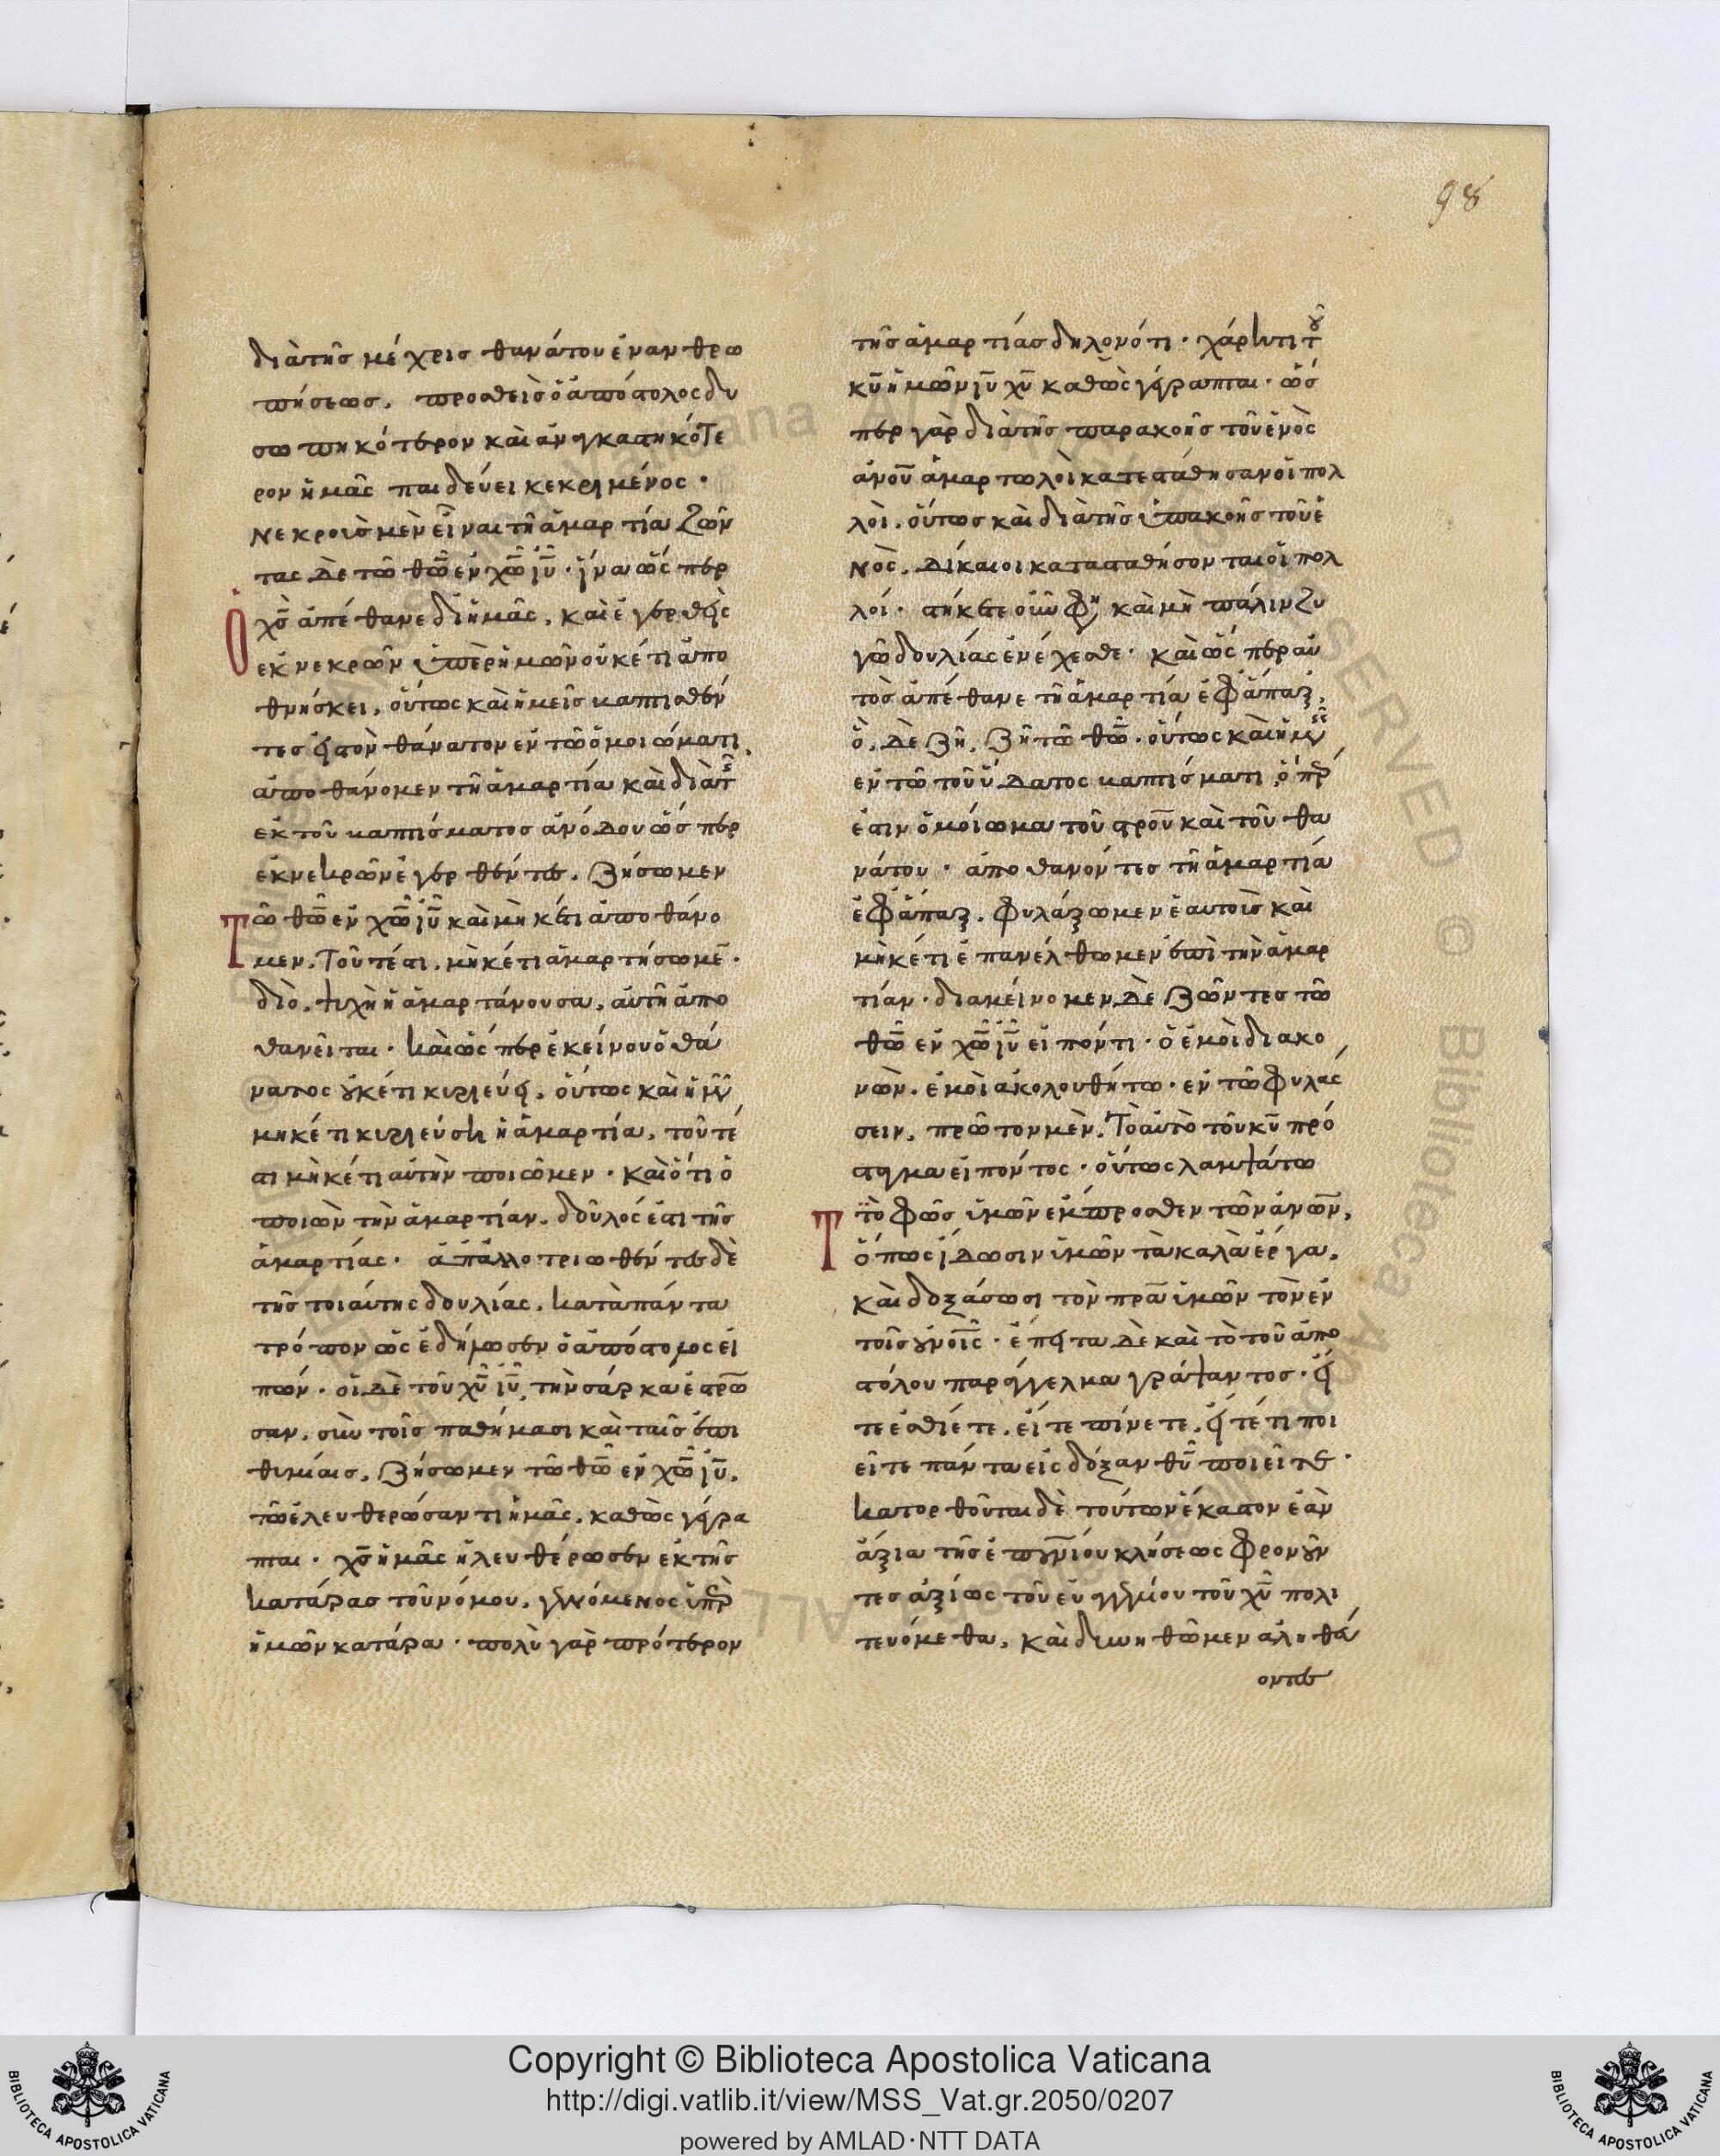 98
διὰ τῆς μέχρις θανάτου ἐνανθρω
πήσεως. προσθεὶς ὁ ἀπόστολος δυ
σωπηκότερον καὶ ἀναγκαστηκότε
ρον ἡμᾶς παιδεύει κεκριμένος·
Νεκροὺς μὲν εἶναι τῇ ἁμαρτία ζῶν
τας δὲ τῶ θῶ ἐν χῶ ἰῦ· ἵνα ὥσπερ
ὁ χς ἀπέθανε δι ἡμᾶς, καὶ ἐγερθεὶς
ἐκ νεκρῶν ὑπὲρ ἡμῶν οὐκέτι ἀπο
θνήσκει, οὕτως καὶ ἡμεῖς βαπτισθέν
τες εἰς τὸν θάνατον ἐν τῶ ὁμοιώματι
ἀποθάνομεν τῆ ἁμαρτία καὶ διὰ τῆς
ἐκ τοῦ βαπτίσματος ἀνόδου ὥσπερ
ἐκ νεκρῶν ἐγερθέντες, ζήσωμεν
Τῶ θῶ ἐν χῶ ἰῦ καὶ μὴ κέτι ἀποθάνο
μεν. Τοῦτέστι, μὴκέτι ἁμαρτήσωμε̄·
διὸ, ψυχὴ ἡ ἁμαρτάνουσα, αὐτὴ ἀπο
θανεῖται· καὶ ὥσπερ ἐκείνου ὁ θά
νατος οὐκέτι κυριεύει, οὕτως καὶ ἡμῶν
μηκέτι κυριεύση ἡ ἁμαρτία, τοῦτέ
στι μὴκέτι αὐτὴν ποιῶμεν· καὶ ὅτι ὁ
ποιῶν τὴν ἁμαρτίαν, δοῦλός ἐστι τῆς
ἁμαρτίας· ἀπαλλοτριωθέντες δὲ
τῆς τοιαύτης δουλίας, κατὰ πάντα
τρόπον ὡς ἐδήλωσεν ὁ ἀπόστολος εἰ
πών· οἱ δὲ τοῦ χῦ ἰῦ, τὴν σάρκα ἐστρω
σαν, σὺν τοῖς παθήμασι καὶ ταῖς ἐπι
θυμίαις, ζήσωμεν τῶ θῶ ἐν χῶ ἰῦ,
τῶ ἐλευθερώσαντι ἡμᾶς, καθὼς γέγρα
πται· χς ἡμᾶς ἠλευθέρωσεν ἐκ τῆς
κατάρας τοῦ νόμου, γενόμενος ὑπὲρ
ἡμῶν κατάρα· πολὺ γὰρ πρότερον
τῆς ἁμαρτίας δηλονότι· χάριτι τοῦ
κῦ ἡμῶν ἰῦ χῦ καθὼς γέγραπται· ὥσ
περ γὰρ διὰ τῆς παρακοῆς τοῦ ἑνὸς
ἀνοῦ ἁμαρτωλοὶ κατεστάθησαν οἱ πολ
λοὶ, οὕτως καὶ διὰ τῆς ὑπακοῆς τοῦ ἑ
νὸς, δίκαιοι κατασταθήσονται οἱ πολ
λοί· στήκετε οὖν φη καὶ μὴ πάλιν ζυ
γῶ δουλίας ἐνέχεσθε· καὶ ὥσπερ αὐ
τὸς ἀπέθανε τῆ ἁμαρτία ἐφάπαξ,
ὃ, δὲ ζῆ, ζῆ τῶ θῶ· οὕτως καὶ ἡμεῖς
ἐν τῶ τοῦ ὕδατος βαπτίσματι, ὅπερ
ἐστιν ὁμοίωμα τοῦ στροῦ καὶ τοῦ θα
νάτου· ἀποθανόντες τῆ ἁμαρτία
ἐφάπαξ, φυλάξωμεν ἑαυτοὺς καὶ
μὴκέτι ἐπανέλθωμεν ἐπὶ τὴν ἁμαρ
τίαν· διαμείνομεν δὲ ζῶντες τῶ
θῶ ἐν χῶ ἰῦ εἰπόντι· ὁ ἐμοὶ διακο
νῶν, ἐμοὶ ἀκολουθήτω· ἐν τῶ φυλάσ
σειν, πρῶτον μὲν, Τὸ αὐτὸ τοῦ κῦ πρό
σταγμα εἰπόντος· οὕτως λαμψάτω
Τὸ φῶς ὑμῶν ἔμπροσθεν τῶν ἀνῶν,
ὅπως ἴδωσιν ὑμῶν τὰ καλὰ ἔργα,
καὶ δοξάσωσι τὸν πρα ὑμῶν τὸν ἐν
τοῖς οὐνοῖς· ἔπειτα δὲ καὶ τὸ τοῦ ἀπο
στόλου παράγγελμα γράψαντος· εἴ
τε ἐσθίετε, εἴτε πίνετε, εἴτέ τι ποι
εῖτε πάντα εἰς δόξαν θῦ ποιεῖτε·
κατορθοῦται δὲ τούτων ἕκαστον ἐὰν
ἄξια τῆς ἐπουνίου κλήσεως φρονοῦν
τες ἀξίως τοῦ εὐαγγελίου τοῦ χῦ πολι
τευόμεθα, καὶ δυνηθῶμεν ἀληθά
οντες
Copyright © Biblioteca Apostolica Vaticana
http://digi.vatlib.it/view/MSS_Vat.gr.2050/0207
powered by AMLAD·NTT DATA